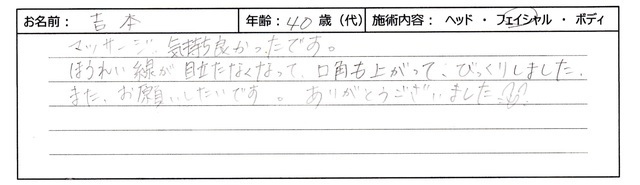 お名前： 吉本 年齢：40歳（代） 施術内容：ヘッド ・ フェイシャル ・ ボディ
マッサージ、気持ち良かったです。
ほうれい線が目立たなくなって、口角も上がって、びっくりしました。
また、お願いしたいです。ありがとうございました